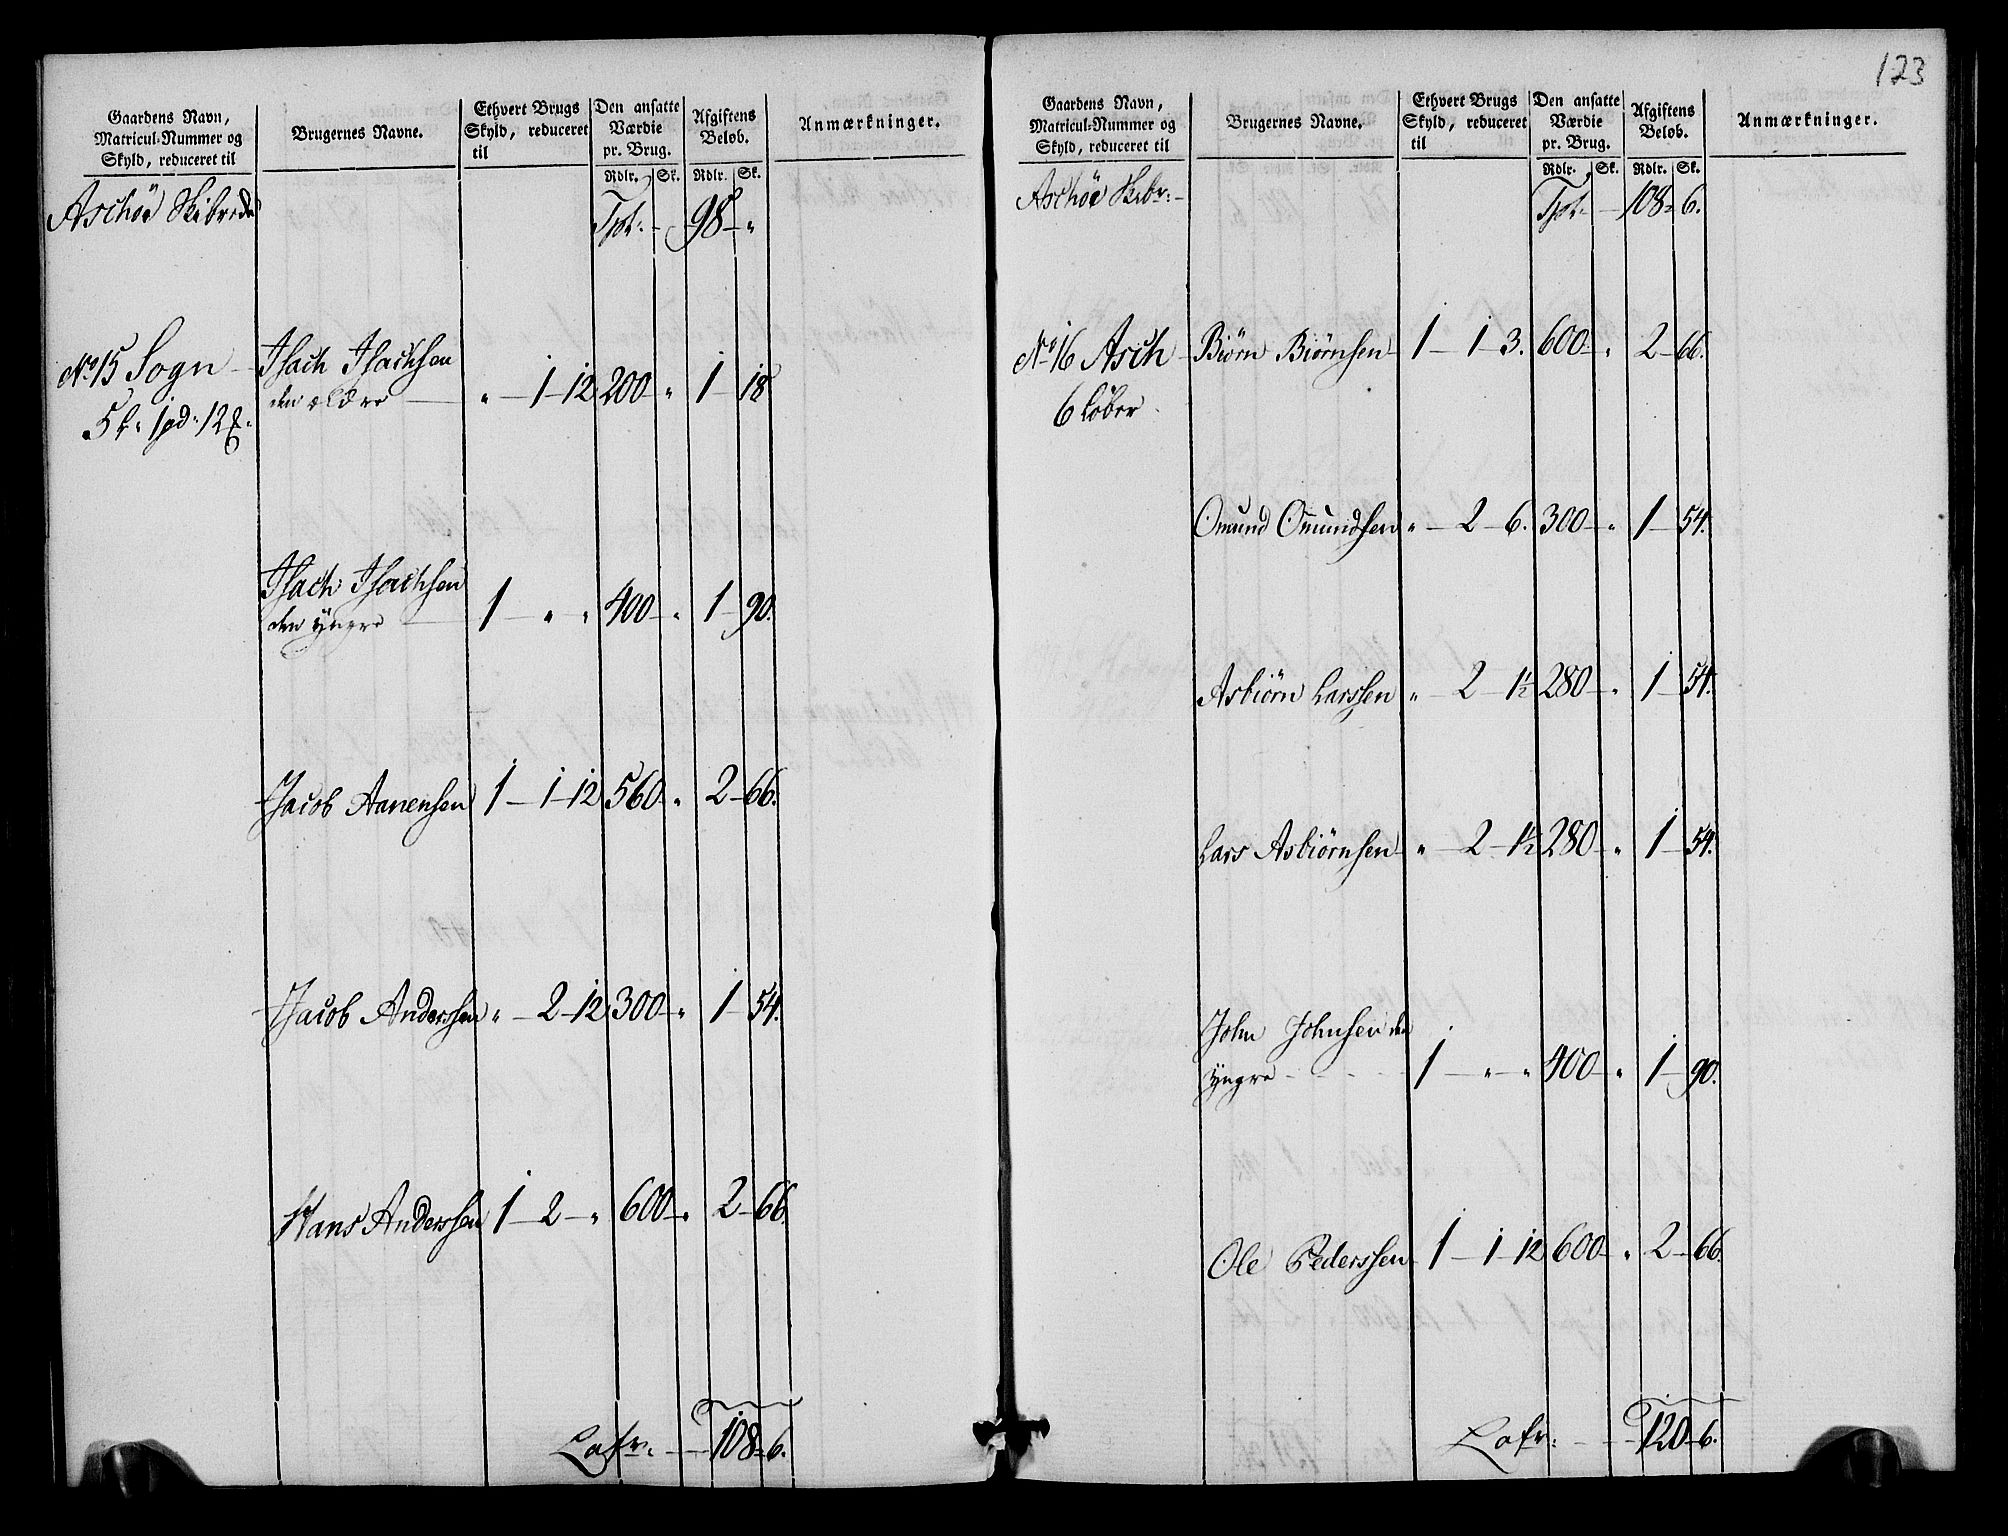 Gaardens Navn,
Matricul-Nummer og
Skyld, reduceret til
Brugernes Navne.
Ethvert Brugs
Skyld, reduceret
til
Den ansatte
Værdie
pr. Brug.
Rdlr. Sk.
Afgiftens
Beløb.
Rdlr. Sk.
Anmærkninger.
Aschøe Skibrede
Tpt: 98 - "
No 15 Sogn
5 L. 1 pd. 12
Isach Isachsen
den eldre " - 1 - 12 200 " 1 - 18
Isach Isachsen
den Yngre 1 - " " 400 - " 1 - 90.
Jacob Aanensen 1 - 1 - 12 560 - " 2 - 66.
Jacob Anderssen " - 2 - 12 300 - " 1 - 54.
Hans Anderssen 1 - 2 - " 600 - " 2 - 66.
Lafr: 108 - 6.
123
Gaardens Navn,
Matricul-Nummer og
Skyld, reduceret til
Brugernes Navne.
Ethvert Brugs
Skyld, reduceret
til
Den ansatte
Værdie
pr. Brug.
Rdlr. Sk.
Afgiftens
Beløb.
Rdlr. Sk.
Anmærkninger.
Aschøe Skibr:
Tpt: 108 - 6.
No 16 Asch
6 Løber
Biørn Biørnsen 1 - 1 - 3. 600 - " 2 - 66.
Omund Omundsen " - 2 - 6. 300 - " 1 - 54.
Asbiørn Larssen " - 2 - 1½ 280 - " 1 - 54.
Lars Asbiørnsen " - 2 - 1½ 280 - " 1 - 54.
John Johnsen den
Yngre 1 - " - " 400 - " 1 - 90.
Ole Pederssen 1 - 1 - 12 600 - " 2 - 66.
Lafr: 120 - 6.